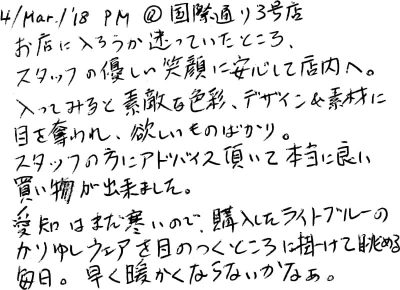 4/Mar./'18 PM @国際通り3号店
お店に入ろうか迷っていたところ、
スタッフの優しい笑顔に安心して店内へ。
入ってみると素敵な色彩、デザイン&素材に
目を奪われ、欲しいものばかり。
スタッフの方にアドバイス頂いて本当に良い
買い物が出来ました。
愛知はまだ寒いので、購入したライトブルーの
かりゆしウェアを目のつくところに掛けて眺める
毎日。早く暖かくならないかなぁ。